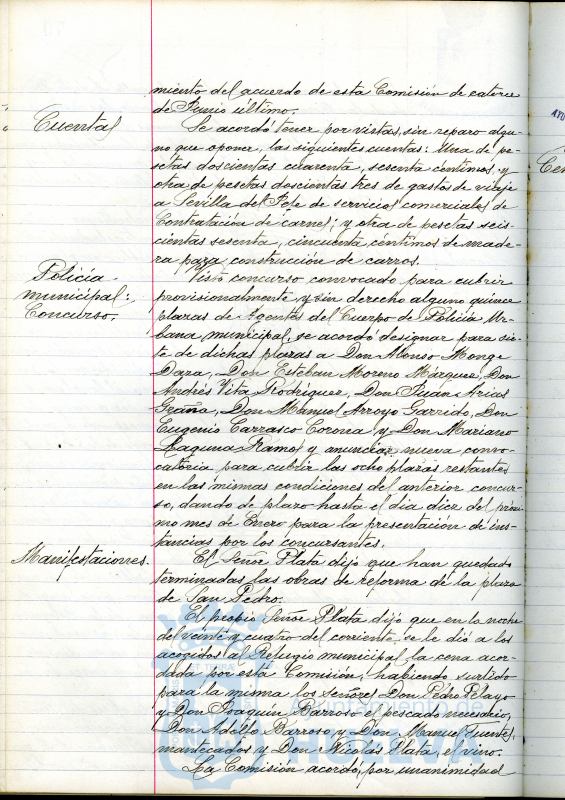 miento del acuerdo de esta Comisión de catorce
de Junio último.
Cuentas
Se acordó tener por vistas, sin reparo algu-
no que oponer, las siguientes cuentas: Una de pe-
setas doscientas cuarenta, sesenta céntimos, y
otra de pesetas doscientas tres de gastos de viaje
a Sevilla del Jefe de servicios comerciales de
Contratación de carnes; y otra de pesetas seis-
cientas sesenta, cincuenta céntimos de made-
ra para construcción de carros.
Policía
municipal:
Concurso.
Visto concurso convocado para cubrir
provisionalmente y sin derecho alguno quince
plazas de Agentes del Cuerpo de Policía Ur-
bana municipal, se acordó designar para sie-
te de dichas plazas a Don Alonso Monge
Daza, Don Esteban Moreno Márquez, Don
Andrés Vita Rodríguez, Don Juan Arias
Graña, Don Manuel Arroyo Garrido, Don
Eugenio Carrasco Coronea y Don Mariano
Laguna Ramos y anunciar nueva convo-
catoria para cubrir las ocho plazas restantes
en las mismas condiciones del anterior concur-
so, dando de plazo hasta el dia diez del próxi-
mo mes de Enero para la presentación de ins-
tancias por los concursantes.
Manifestaciones.
El Señor Plata dijo que han quedado
terminadas las obras de reforma de la plaza
de San Pedro.
El propio Señor Plata dijo que en la noche
del veinte y cuatro del corriente se le dió a los
acogidos al Refugio municipal la cena acor-
dada por esta Comisión, habiendo surtido
para la misma los señores Don Pedro Pelayo
y Don Joaquín Barroso el pescado necesario,
Don Adolfo Barroso y Don Manuel Fuentes,
mantecados y Don Nicolás Plata, el vino.
La Comisión acordó, por unanimidad